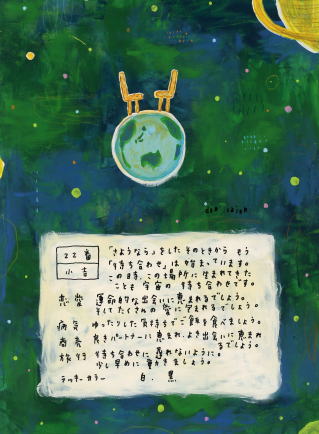 22番
小吉
「さようなら」をしたそのときから もう
「待ち合わせ」は 始まっています。
この時、この場所に 生まれてきた
ことも 宇宙の 待ち合わせです。
恋愛 運命的な出会いに恵まれるでしょう。
そしてたくさんの 愛に 包まれるでしょう。
病気 ゆったりした気持ちでご飯を食べましょう。
商売 良きパートナーに恵まれ、よき出会いに恵まれ
るでしょう。
旅行 待ち合わせに 遅れないように。
少し早めに 動きましょう。
ラッキーカラー 白、黒